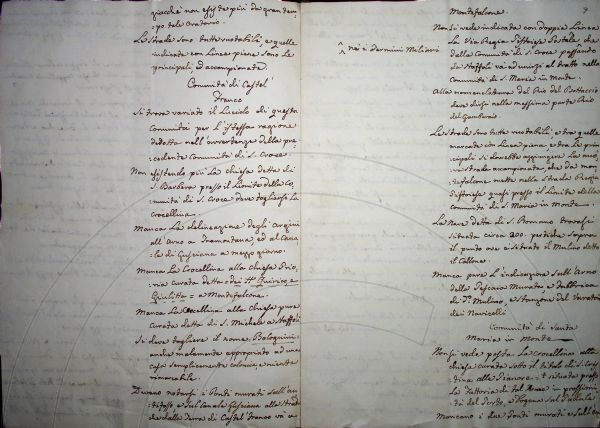 giacchè non esiste più da gran tem-
-po tale Oratorio.
Le strade sono tutte ruotabili, e quelle
indicate con Linea piena sono le
principali, ed accompionate
Comunità di Castel
Franco
Si trova variato il Lucido di questa
Comunità per l'istessa ragione
dedotta nell'avvertenza della pre-
=cedente Comunità di S. Croce.
Non esistendo più la chiesa detta di
S. Barbera presso il Limite della Co-
munità di S. Croce deve togliersi la
Crocellina.
Manca la delineazione degli Argini
all'Arno a Tramontana ed al Cana-
le di Gusciana a mezzo giorno.
Manca la Crocellina alla chiesa Prio-
ria curata detta dei SS. Quirico, e
Giulitta = a Montefalcone.
Manca la Crocellina alla chiesa pure
curata detta di S. Michele a Staffoli
Si deve togliere il nome Bolognini
anche malamente appropriato ad una
casa semplicemente colonica, e niente
rimarcabile
Devono notarsi i Ponti murati sull'an-
=tifosso, e sul Canale Gusciana alla strada
che dalla Terra di Castel Franco va a
^ nei 2 Termini Militari
9
Montefalcone.
Non si vede indicata con doppia Linea
la Via Regia Pistoiese Postale, che
dalla Comunità di S. Croce passando
da Staffoli va ad unirsi al tratto nella
Comunità di S. Maria in Monte.
Alla nomenclatura del Rio del Bottaccio
deve dirsi nella massima parte Rio
del
Le strade sono tutte ruotabili, e tra quelle
marcate con Linea piena, e tra le prin-
cipali si dovrebbe aggiungere la nuo-
va strada accompionata, che da mon-
tefalcone mette nella Strada Regia
Pistoiese quasi presso il Limite della
comunità di S. Maria in Monte.
La Nave detta di S. Romano trovasi
situata circa 200. pertiche sopra
il punto ove è situato il Mulino detto
il Callone.
Manca pure l'indicazione sull'Arno
della Pescaia Murata, e Fabbrica
di d.o Mulino, e
dei Navicelli
Comunità di Santa
Maria in Monte
Non si vede posta la Crocellina alla
chiesa curata sotto il titolo di S. Cri-
stina alle Pianore = situata presso
la Fattoria di tal Nome in prossimi-
tà del Porto, e Dogana sul Padule
Mancano i due Ponti murati